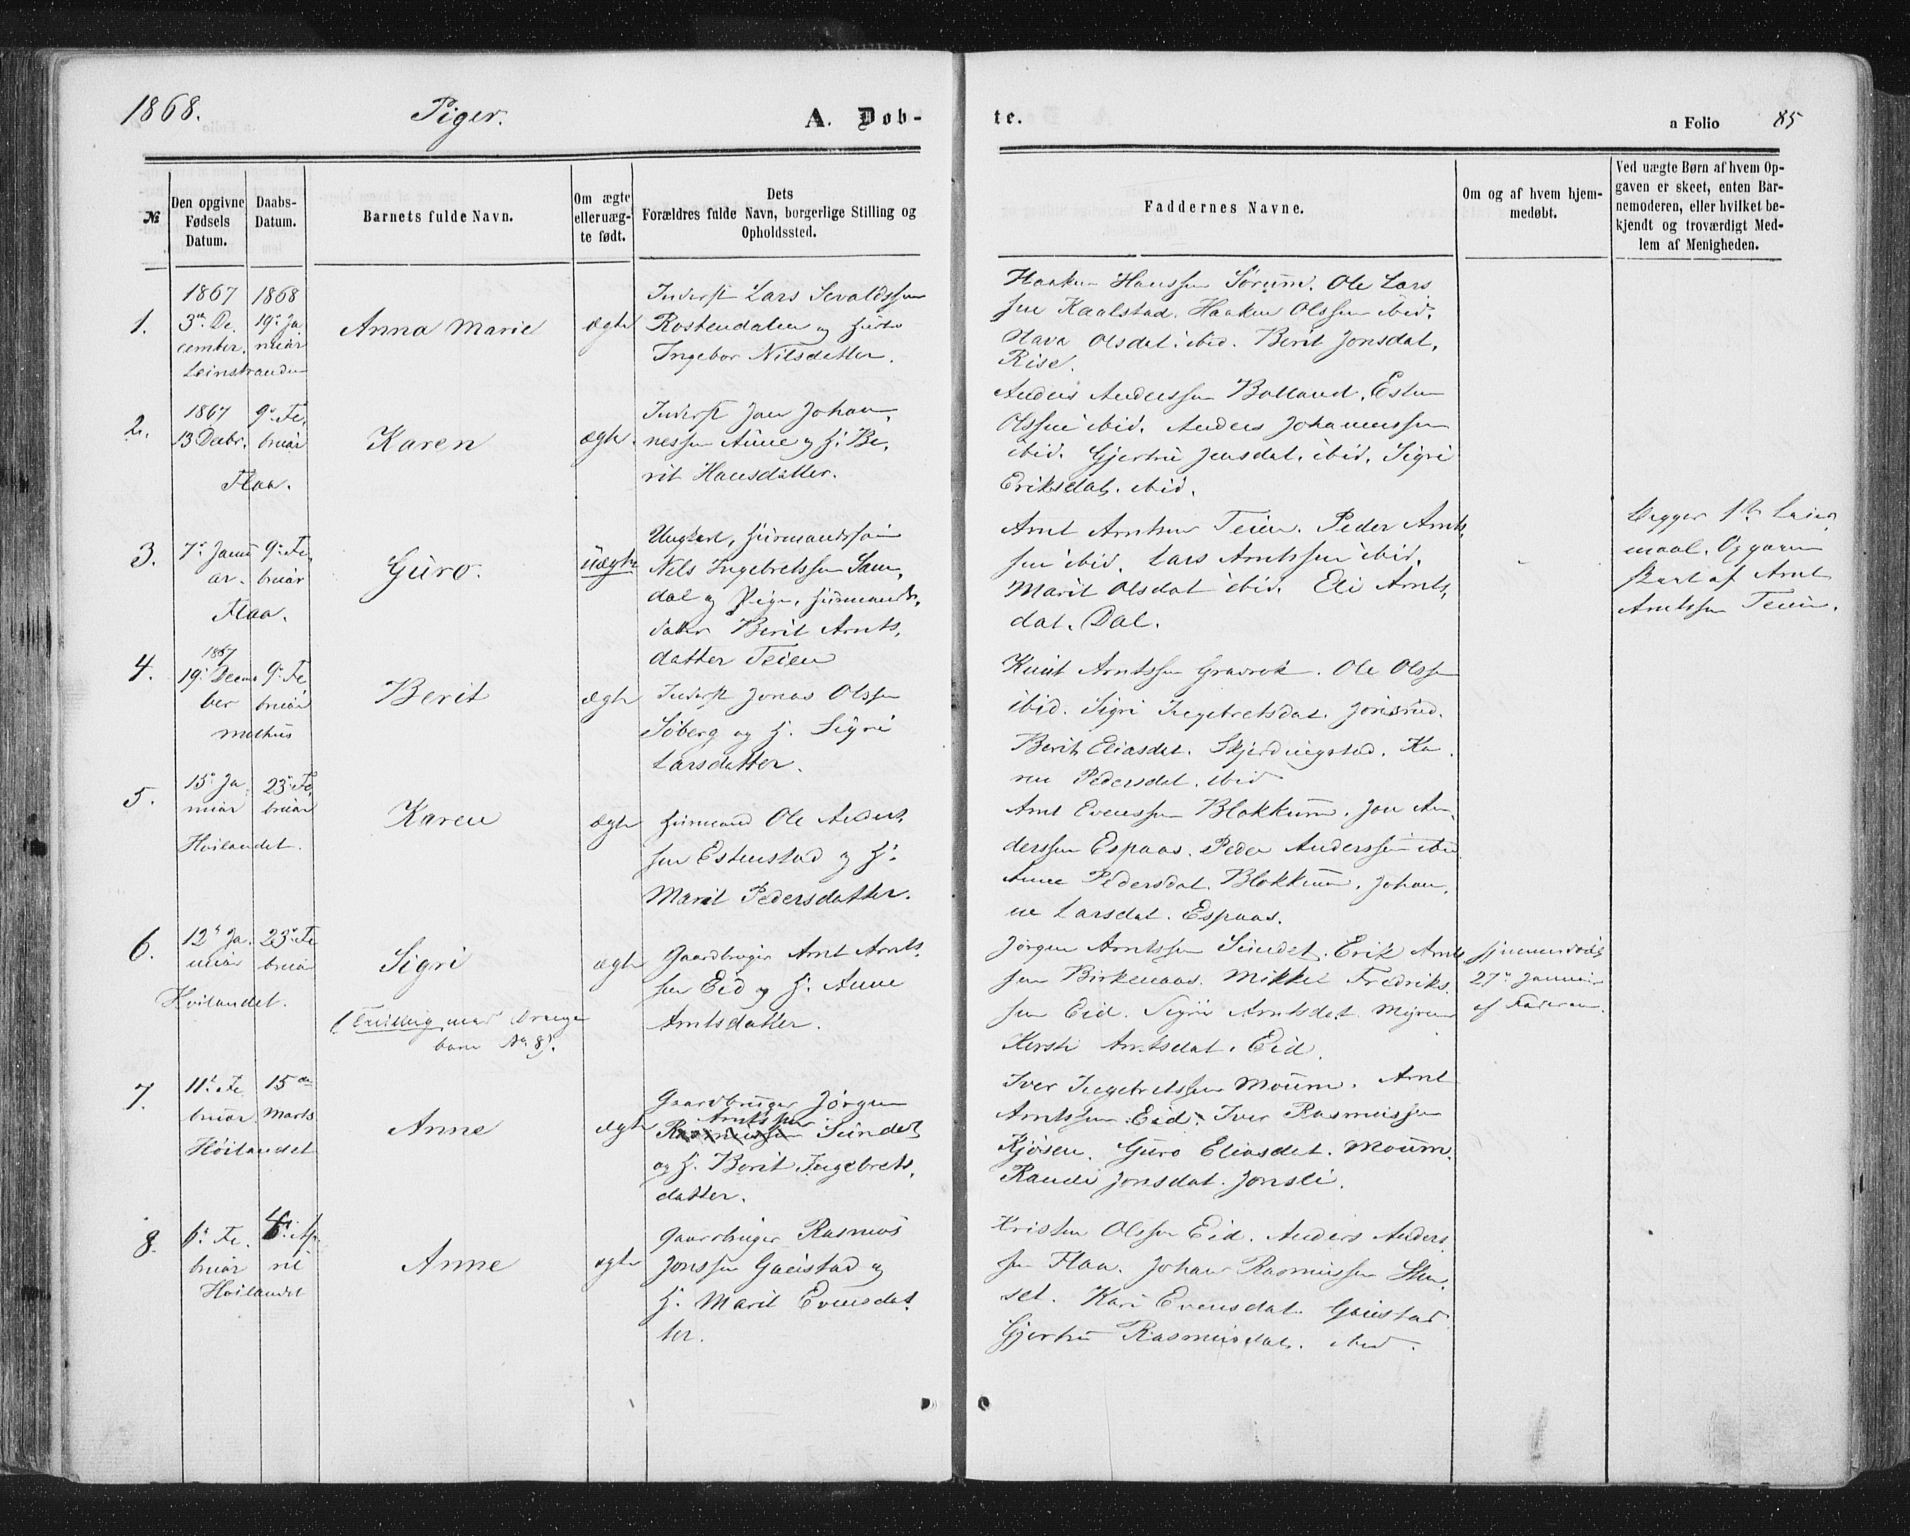 1868. Piger. A. Døb-
te. a Folio 85
№
Den opgivne Fødsels Datum.
Daabs-Datum.
Barnets fulde Navn.
Om ægte eller uæg-te født.
Dets
Forældres fulde Navn, borgerlige Stilling og
Opholdssted.
Faddernes Navne.
Om og af hvem hjem-
medøbt.
Ved uægte Børn af hvem Op-
gaven er skeet, enten Bar-
nemoderen, eller hvilket be-
kjendt og troværdigt Med-
lem af Menigheden.
1.
1867 1868
3die De 19de Ja
cember. nuar
Leinstranden
Anna Marie
ægte
Inderst Lars Sevaldssen
Rostendalen og Hustro
Ingebor Nilsdatter.
Haaken Hanssen Sørum. Ole Lars
sen Kaalstad. Haaken Olssen ibid.
Olava Olsdat. ibid. Berit Jonsdat.
Rise.
2.
1867 9de Fe
13 Decbr. bruar
Flaa.
Karen
ægte.
Inderst Jon Johan
nessen Aune og H. Be
rit Hansdatter.
Anders Anderssen Bolland. Esten
Olssen ibid. Anders Johannssen
ibid. Gjertru Jensdat. ibid. Sigri
Eriksdat. ibid.
3.
7de Janu 9de Fe
ar. bruar
Flaa.
Guro.
uægte
Ungkarl, Husmandssøn
Nils Ingebretssen Sam
dal og Pige, Husmands
datter Berit Arnts
datter Teien
Arnt Arntsen Teien. Peder Arnts
sen ibid. Lars Arntssen ibid.
Marit Olsdat ibid. Eli Arnts
dat. Dal.
Begges 1ste Leier
maal. Opgaven
skeet af Arnt
Arntssen Teien.
4.
1867
19de Decem 9de Fe
ber bruar
Melhus
Berit
ægte
Inderst Jonas Olssen
Søberg og H. Sigri
Larsdatter.
Knut Arntssen Gravrok. Ole Olssen
ibid. Sigri Ingebretsdat. Jonsrud.
Berit Eliasdat. Skjerdingstad. Ka
ren Pedersdat. ibid
5.
15de Ja 23de Fe
nuar bruar
Høilandet.
Karen
ægte
Husmand Ole Anders
sen Estenstad og H.
Marit Pedersdatter.
Arnt Evenssen Blokkum. Jon An
derssen Espaas. Peder Anderssen ibid
Anne Pedersdat. Blokkum. Johan
ne Larsdat. Espaas.
6.
12te Ja. 23de Fe
nuar bruar
Høilandet.
Sigri
(Tvilling med Drenge
barn No 8).
ægte
Gaardbruger Arnt Arnts
sen Eid og H. Anne
Arntsdatter.
Jørgen Arntssen Sundet. Erik Arnts
sen Birkenaas. Mikkel Fredriks
sen Eid. Sigri Arntsdat. Myren
Kersti Arntsdat. Eid.
Hjemmedøbt
27de Januar
af Faderen.
7.
11te Fe 15de
bruar. Marts
Høilandet
Anne
ægte
Gaardbruger Jørgen
Arntssen
Rasmussen Sundet
og H. Berit Ingebrets
datter.
Iver Ingebretssen Moum. Arnt
Arntssen Eid. Iver Rasmussen
Kjøsen. Guro Eliasdat. Moum.
Randi Jonsdat. Jonsli.
8.
6te Fe. 4de Ap
bruar ril
Høilandet
Anne
ægte
Gaardbruger Rasmus
Jonssen Gaustad og
H. Marit Evensdat
ter.
Kristen Olssen Eid. Anders Anders
sen Flaa. Johan Rasmussen
set. Kari Evensdat. Gaustad
Gjertru Rasmusdat. ibid.